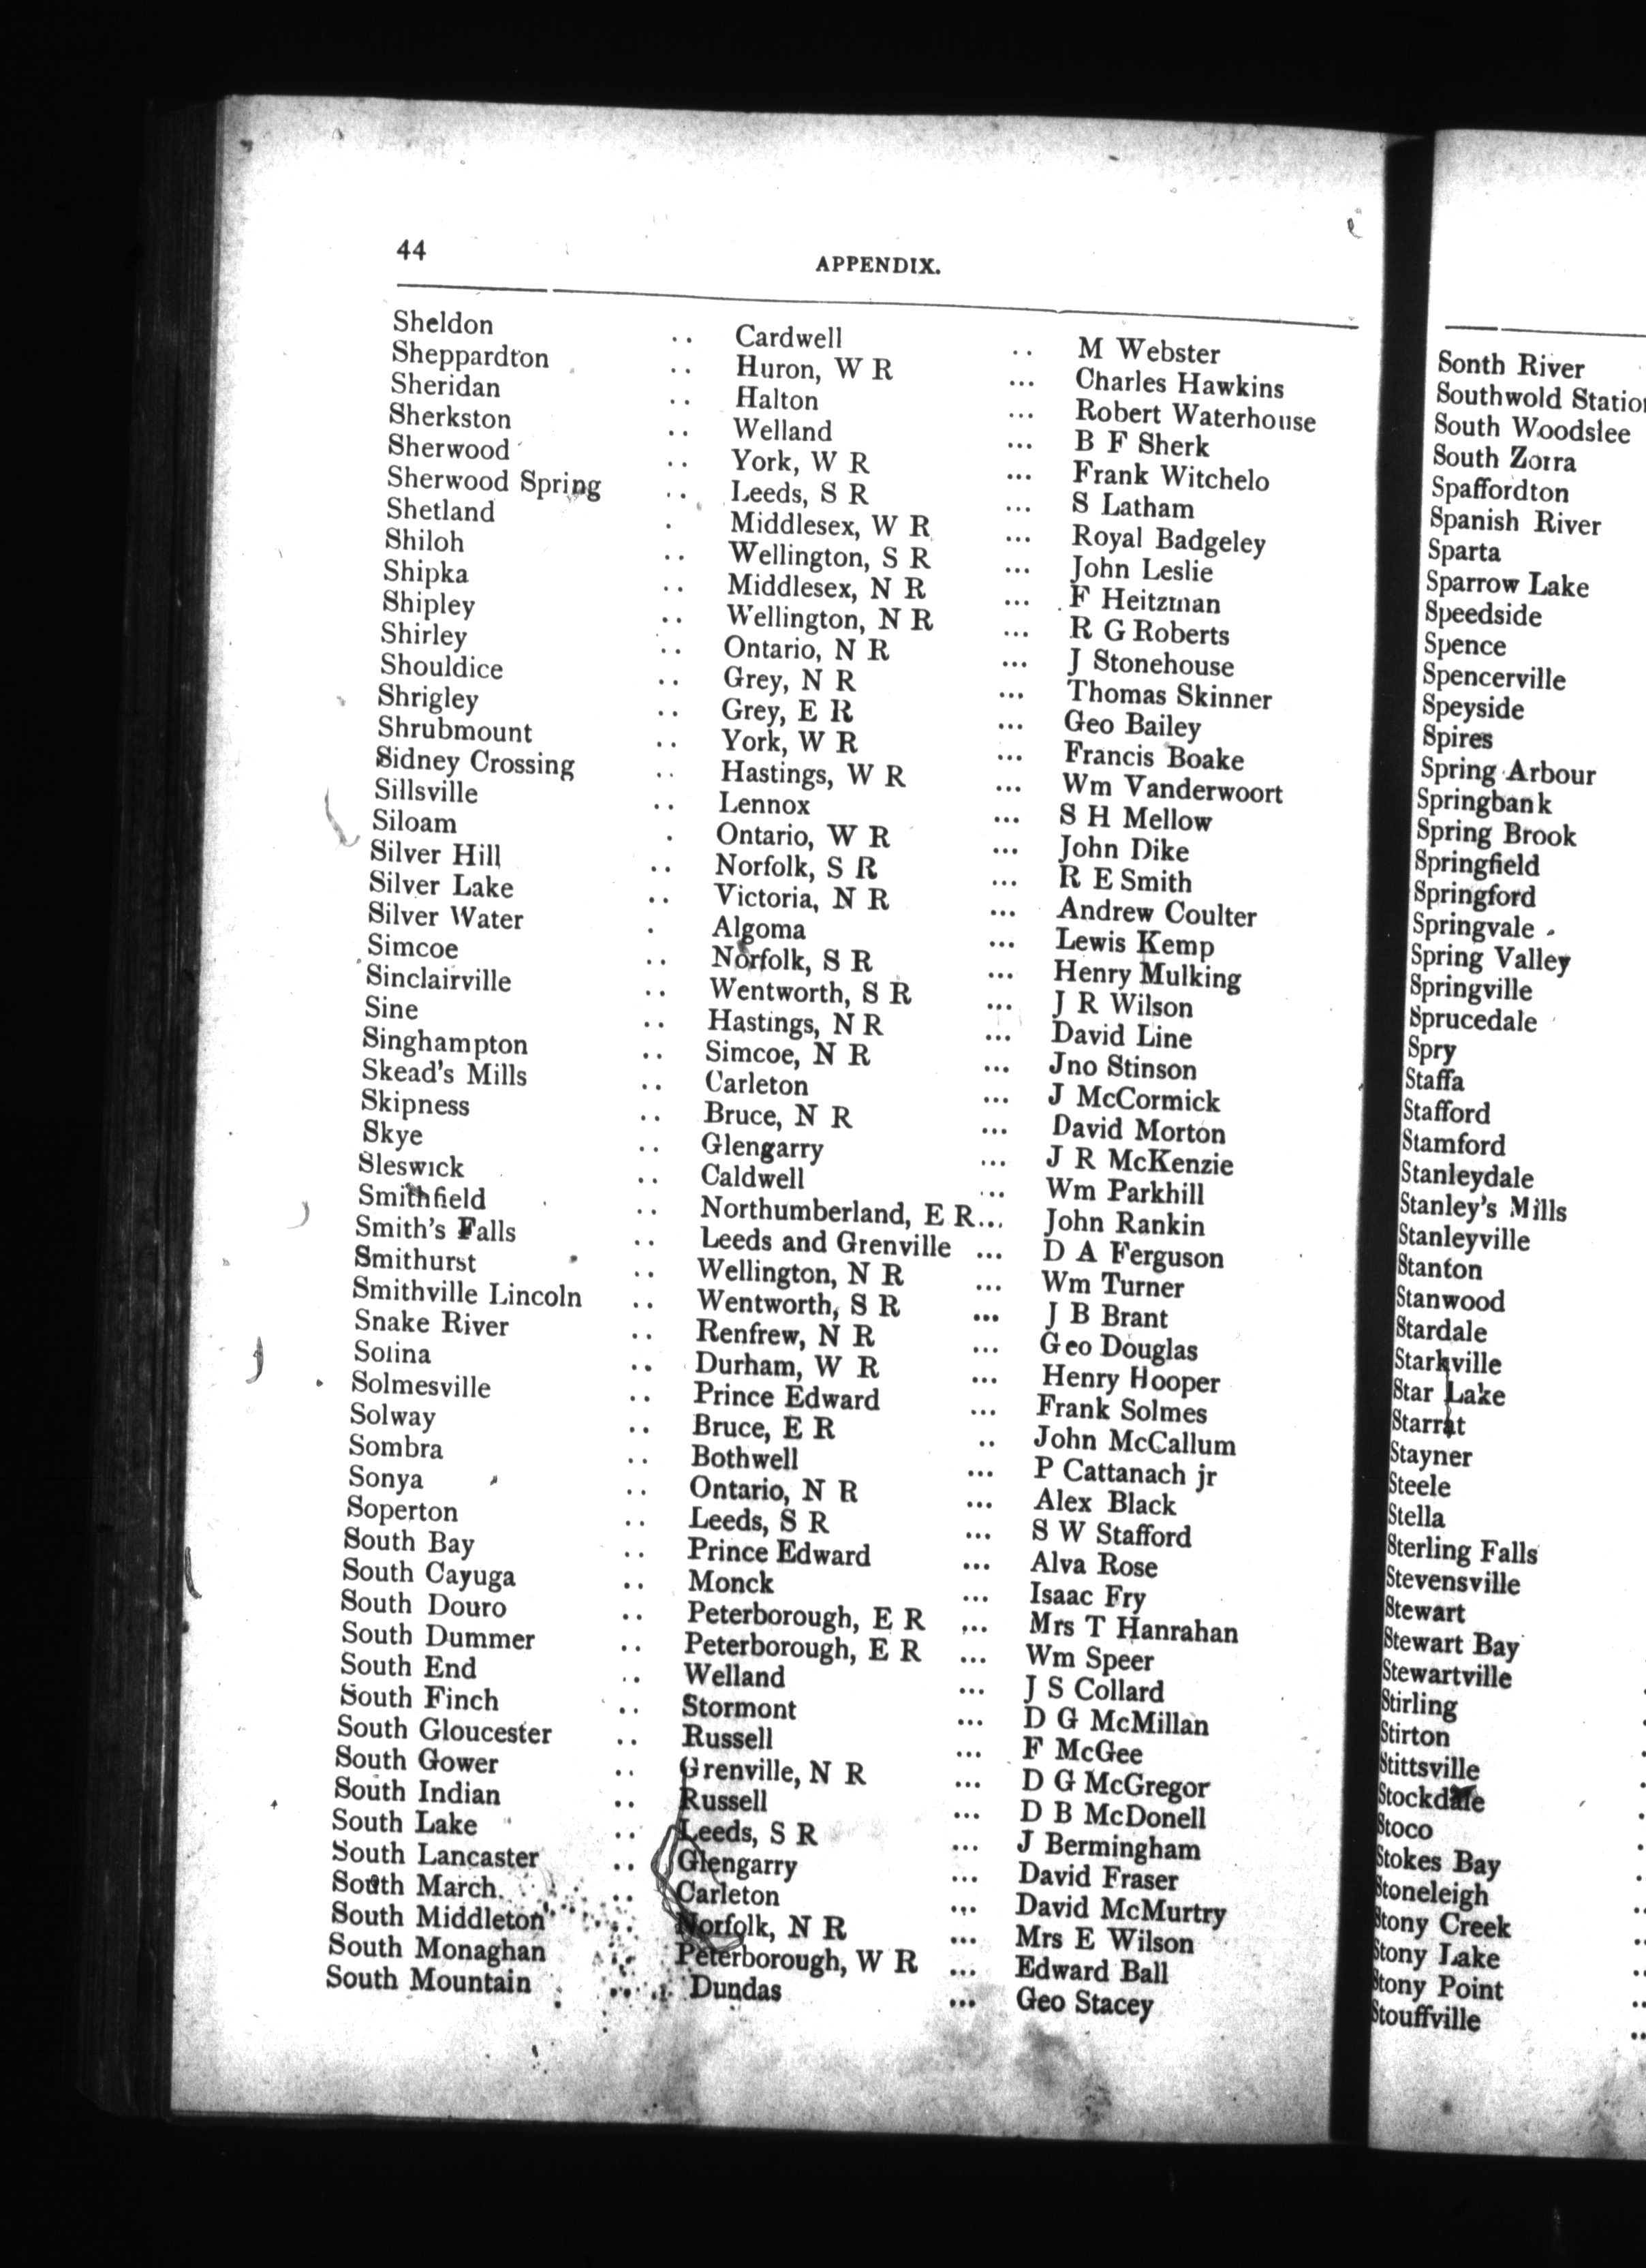 44
APPENDIX.
Sheldon .. Cardwell .. M Webster
Sheppardton .. Huron, W R ... Charles Hawkins
Sheridan .. Halton ... Robert Waterhouse
Sherkston .. Welland ... B F Sherk
Sherwood .. York, W R ... Frank Witchelo
Sherwood Spring .. Leeds, S R ... S Latham
Shetland . Middlesex, W R ... Royal Badgeley
Shiloh .. Wellington, S R ... John Leslie
Shipka .. Middlesex, N R ... F Heitzman
Shipley .. Wellington, N R ... R G Roberts
Shirley .. Ontario, N R ... J Stonehouse
Shouldice .. Grey, N R ... Thomas Skinner
Shrigley .. Grey, E R ... Geo Bailey
Shrubmount .. York, W R ... Francis Boake
Sidney Crossing .. Hastings, W R ... Wm Vanderwoort
Sillsville .. Lennox ... S H Mellow
Siloam . Ontario, W R ... John Dike
Silver Hill .. Norfolk, S R ... R E Smith
Silver Lake .. Victoria, N R ... Andrew Coulter
Silver Water . Algoma ... Lewis Kemp
Simcoe .. Norfolk, S R ... Henry Mulking
Sinclairville .. Wentworth, S R ... J R Wilson
Sine .. Hastings, N R ... David Line
Singhampton .. Simcoe, N R ... Jno Stinson
Skead's Mills .. Carleton ... J McCormick
Skipness .. Bruce, N R ... David Morton
Skye .. Glengarry ... J R McKenzie
Sleswick .. Caldwell ... Wm Parkhill
Smithfield .. Northumberland, E R... John Rankin
Smith's Falls .. Leeds and Grenville ... D A Ferguson
Smithurst .. Wellington, N R ... Wm Turner
Smithville Lincoln .. Wentworth, S R ... J B Brant
Snake River .. Renfrew, N R ... Geo Douglas
Solina .. Durham, W R ... Henry Hooper
Solmesville .. Prince Edward ... Frank Solmes
Solway .. Bruce, E R .. John McCallum
Sombra .. Bothwell ... P Cattanach jr
Sonya .. Ontario, N R ... Alex Black
Soperton .. Leeds, S R ... S W Stafford
South Bay .. Prince Edward ... Alva Rose
South Cayuga .. Monck ... Isaac Fry
South Douro .. Peterborough, E R ... Mrs T Hanrahan
South Dummer .. Peterborough, E R ... Wm Speer
South End .. Welland ... J S Collard
South Finch .. Stormont ... D G McMillan
South Gloucester .. Russell ... F McGee
South Gower .. Grenville, N R ... D G McGregor
South Indian .. Russell ... D B McDonell
South Lake .. Leeds, S R ... J Bermingham
South Lancaster .. Glengarry ... David Fraser
South March .. Carleton ... David McMurtry
South Middleton .. Norfolk, N R ... Mrs E Wilson
South Monaghan .. Peterborough, W R ... Edward Ball
South Mountain .. Dundas ... Geo Stacey
Sonth River
Southwold Station
South Woodslee
South Zorra
Spaffordton
Spanish River
Sparta
Sparrow Lake
Speedside
Spence
Spencerville
Speyside
Spires
Spring Arbour
Springbank
Spring Brook
Springfield
Springford
Springvale
Spring Valley
Springville
Sprucedale
Spry
Staffa
Stafford
Stamford
Stanleydale
Stanley's Mills
Stanleyville
Stanton
Stanwood
Stardale
Starkville
Star Lake
Starrat
Stayner
Steele
Stella
Sterling Falls
Stevensville
Stewart
Stewart Bay
Stewartville
Stirling
Stirton
Stittsville
Stockdale
Stoco
Stokes Bay
Stoneleigh
Stony Creek
Stony Lake
Stony Point
Stouffville